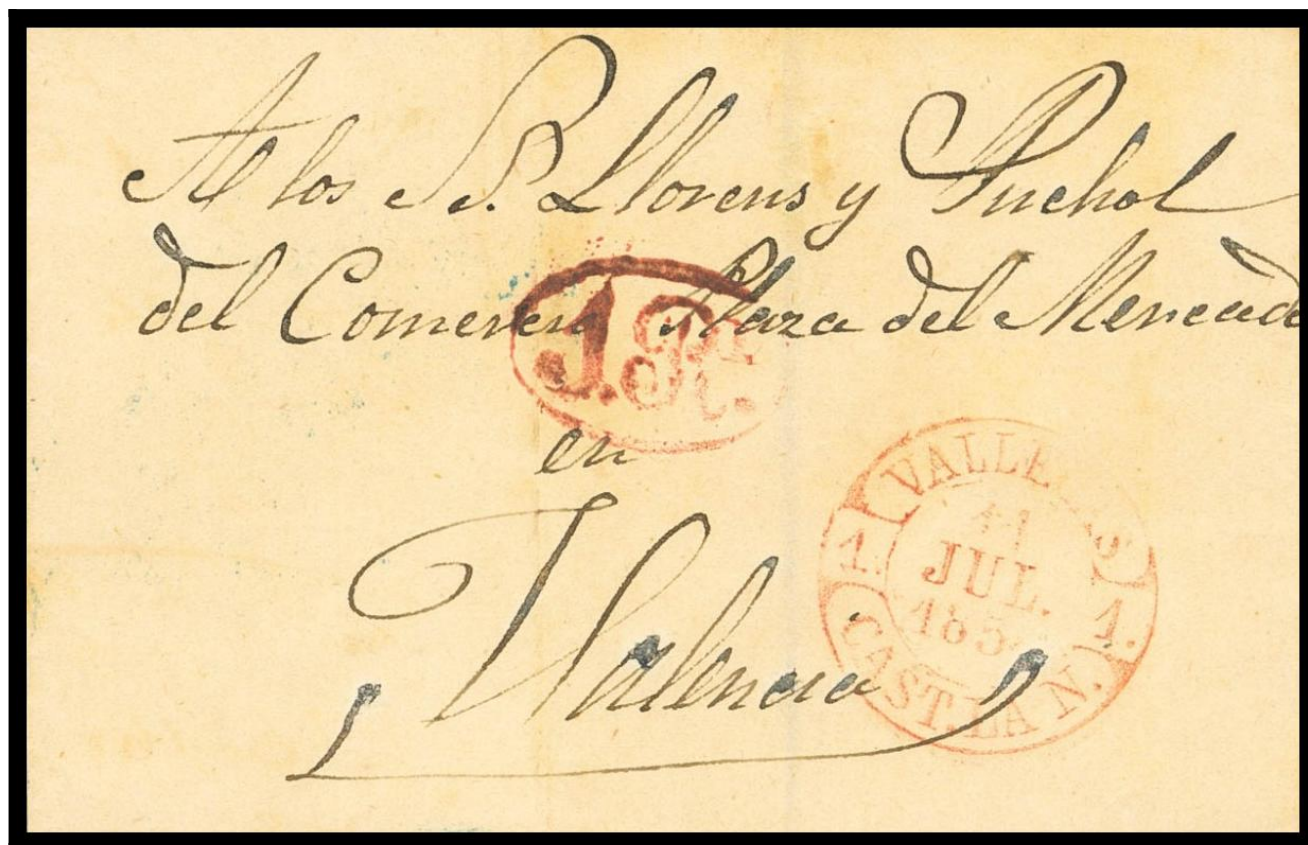 A los S.S. Llorens y Puchol
del Comercio Plaza del Mercado
1.R.
en
Valencia
VALLE S
11
JUL.
185
1. 1.
CAST. LA N.